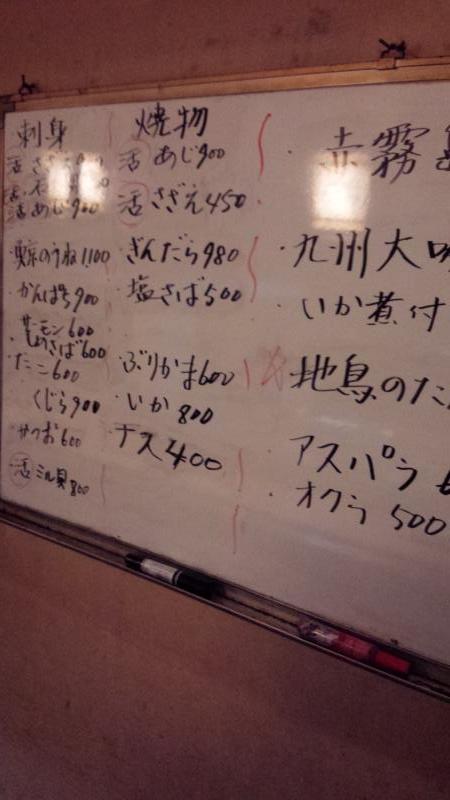 刺身
活 さざえ
活
活 あじ900
うね1100
かんぱち900
サーモン600
しめさば600
たこ600
くじら900
かつお600
活 ミル貝800
焼物
活 あじ900
活 さざえ450
ぎんだら980
塩さば500
ぶりかま600
いか 800
ナス400
・赤霧島
・九州大
・いか煮付
・地鳥のた
・アスパラ
・オクラ 500